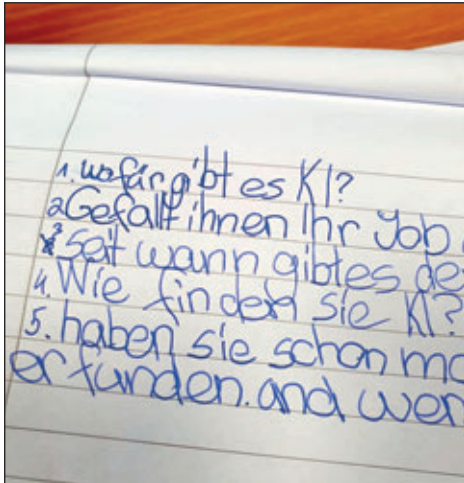 1. wofür gibt es KI?
2 Gefällt ihnen Ihr Job
3 Seit wann gibt es
4. Wie finden sie KI?
5. haben sie schon
erfunden. and